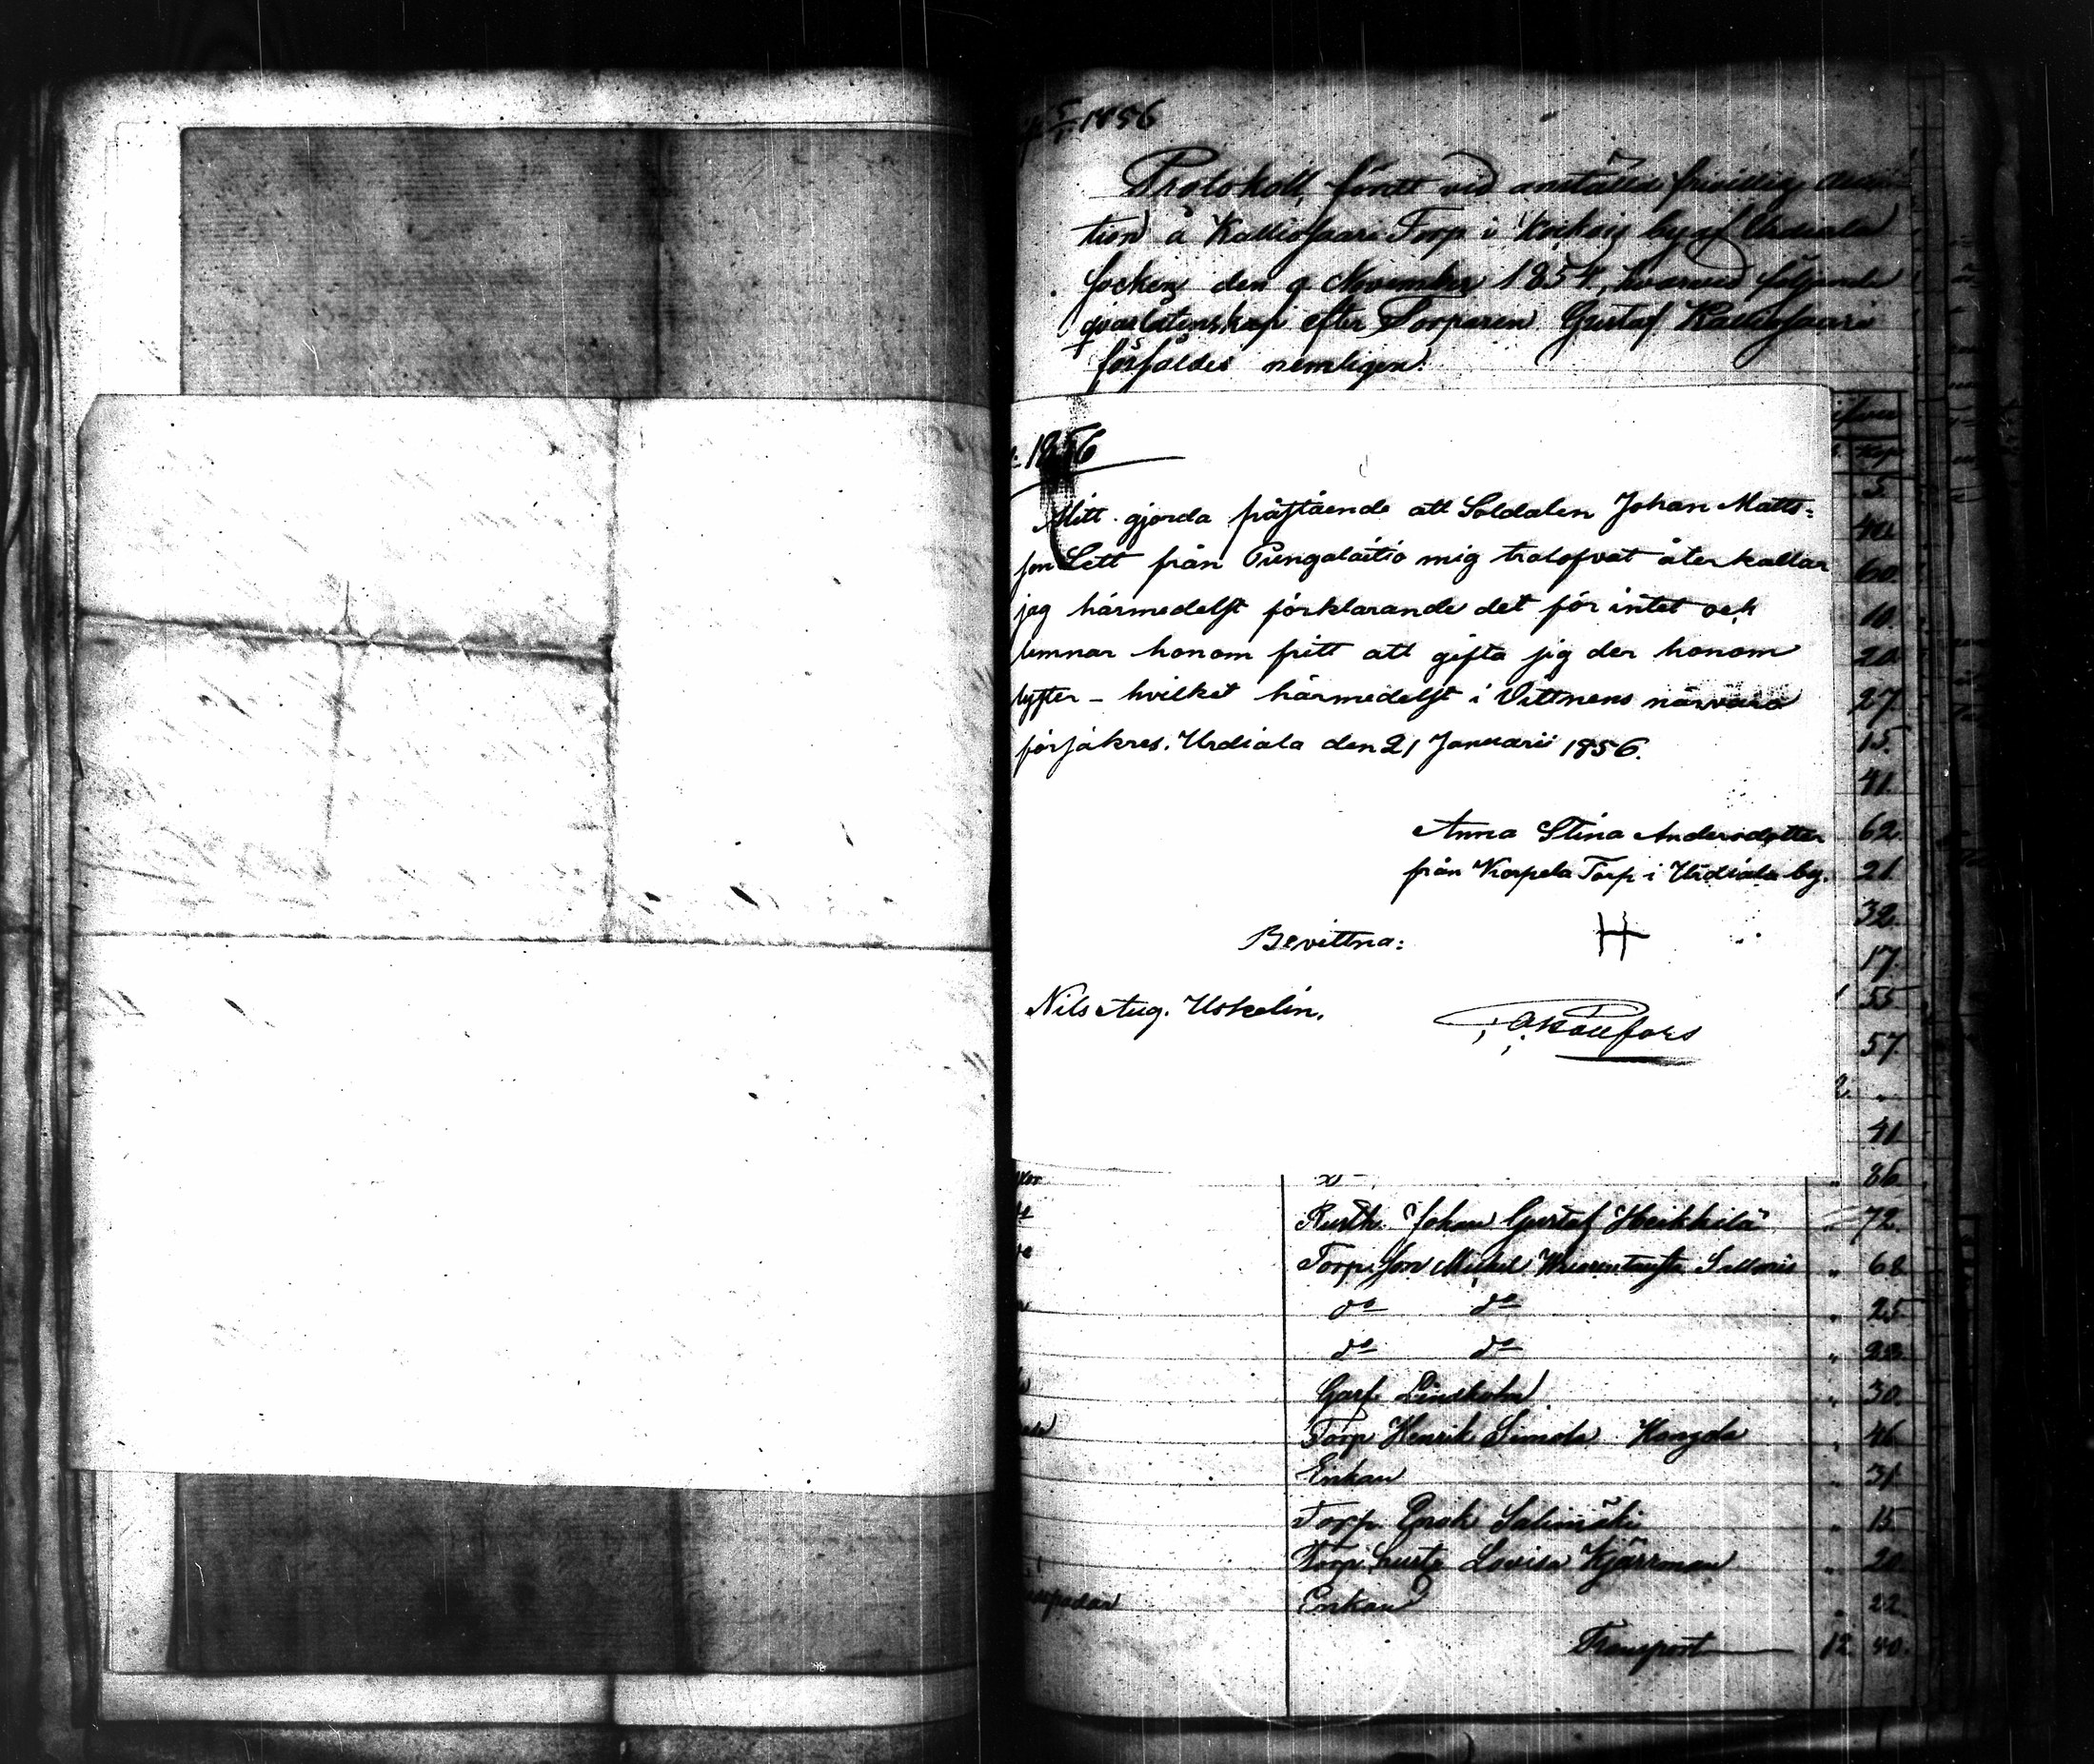 1856
Protokoll, fördt vid anställd frivillig auk
tion å Kalliosaari Torp i Koikois by af Urdiala
socken den 9 November 1854, hvarvid följande
qvarlåtenskap efter Torparen Gustaf Kalliosaari
försåldes nemligen:
1856
Mitt gjorda påstående att Soldaten Johan Matts-
son Lett från Pungalaitio mig trolofvat återkallar
jag härmedelst förklarande det för intet och
lemnar honom fritt att gifta sig der honom
lyster – hvilket härmedelst i Vittnens närvaro
försäkres. Urdiala den 21 Januarii 1856.
Anna Stina Andersdotter
från Korpela Torp i Urdiala by.
Bevittna:
Nils Aug. Uskelin.
5.
40.
60.
10.
20.
27.
15.
41.
62.
21.
32.
17.
1 55
57.
2. "
41
" 86
Rusth. Johan Gustaf Heikkilä " 72.
Torp. Son Michel Sallois " 68
do do " 25
do do "
Garf. Lindholm " 30.
Torp Henrik Simola " 46
Enkan " 31
Torp. Salimäki " 15.
Torp. Lovisa Kjärman " 20.
Enkan " 22
Transport 12 40.